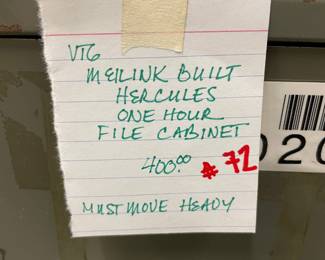 VTG
MEILINK BUILT
HERCULES
ONE HOUR
FILE CABINET
400.00
# 72
MUST MOVE HEAVY
020